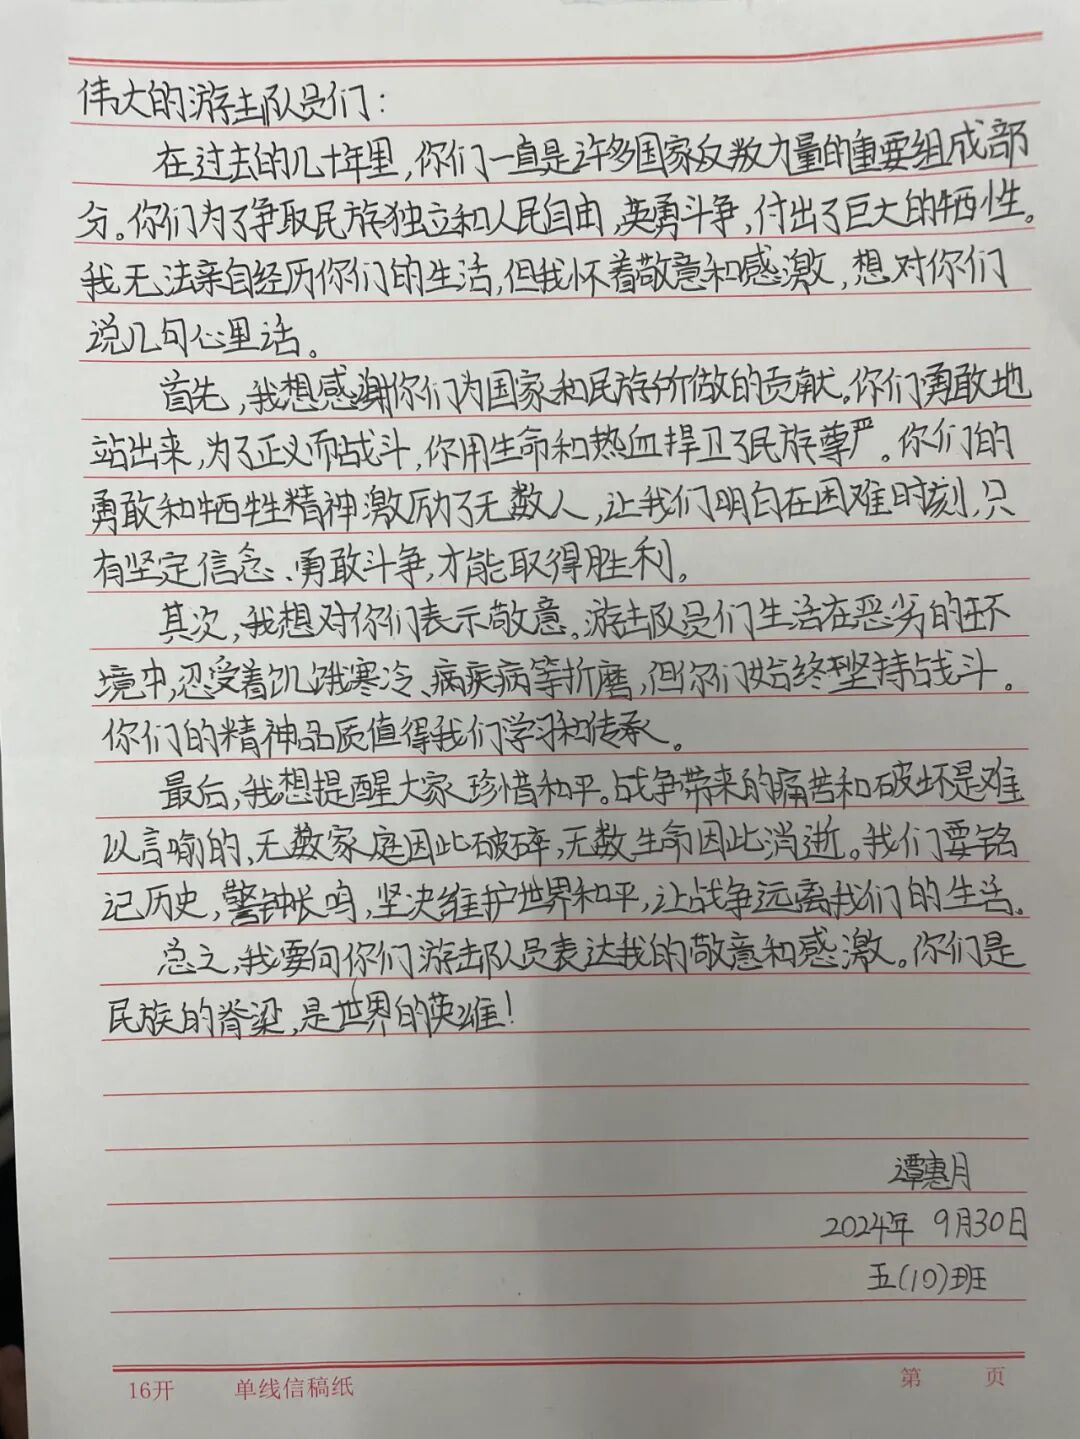 伟大的游击队员们：
在过去的几十年里，你们一直是许多国家反叛力量的重要组成部
分。你们为了争取民族独立和人民自由，英勇斗争，付出了巨大的牺性。
我无法亲自经历你们的生活，但我怀着敬意和感激，想对你们
说几句心里话。
首先，我想感谢你们为国家和民族所做的贡献。你们勇敢地
站出来，为了正义而战斗，你用生命和热血捍卫了民族尊严。你们的
勇敢和牺牲精神激励了无数人，让我们明白在困难时刻，只
有坚定信念、勇敢斗争，才能取得胜利。
其次，我想对你们表示敬意。游击队员们生活在恶劣的环
境中，忍受着饥饿寒冷、病疾病等折磨，但你们始终坚持战斗。
你们的精神品质值得我们学习和传承。
最后，我想提醒大家珍惜和平。战争带来的痛苦和破坏是难
以言喻的，无数家庭因此破碎，无数生命因此消逝。我们要铭
记历史，警钟长鸣，坚决维护世界和平，让战争远离我们的生活。
总之，我要向你们游击队员表达我的敬意和感激。你们是
民族的脊梁，是世界的英雄！
谭惠月
2024年 9月30日
五(10)班
16开 单线信稿纸 第 页